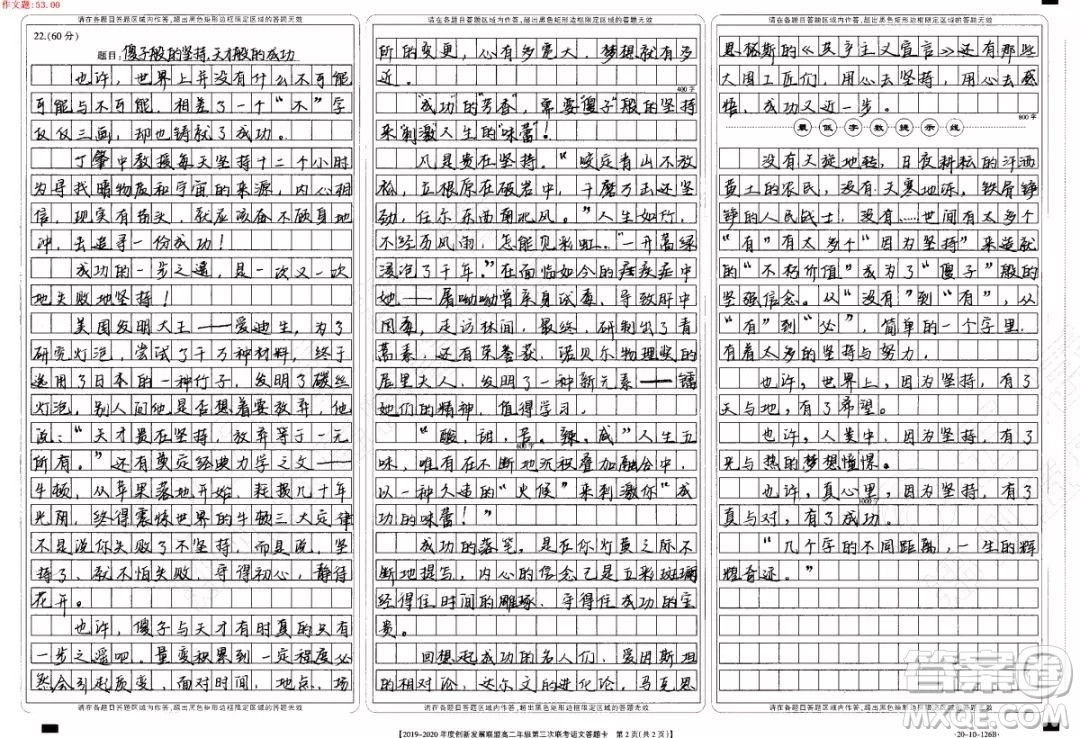 作文题:53.00
请在各题目答题区域内作答,超出黑色矩形边框限定区域的答题无效
22.(60分)
题目: 傻子般的坚持,天才般的成功
也许,世界上并没有什么不可能
可能与不可能,相差了一个“不”字
仅仅三画,却也铸就了成功。
丁肇中教授每天坚持十二个小时
为寻找暗物质和宇宙的来源,内心相
信,现实有苗头,就应该奋不顾身地
冲,去追寻一份成功!
成功的一步之遥,是一次又一次
地失败地坚持!
美国发明大王——爱迪生,为了
研究灯泡,尝试了千万种材料,终于
选用了日本的一种竹子,发明了碳丝
灯泡,别人问他是否想着要放弃,他
说:“天才贵在坚持,放弃等于一无
所有。”还有奠定经典力学之父——
牛顿,从苹果落地开始,耗损几十年
光阴,终得震惊世界的牛顿三大定律
不是说你失败了不坚持,而是说,坚
持了,就不怕失败,守得初心,静待
花开。
也许,傻子与天才有时真的只有
一步之遥吧。量变积累到一定程度必
然会引起质变,面对时间,地点,场
请在各题目答题区域内作答,超出黑色矩形边框限定区域的答题无效
请在各题目答题区域内作答,超出黑色矩形边框限定区域的答题无效
所的变更,心有多宽大,梦想就有多
近。
400字
“成功”的“芳香”,需要“傻子”般的坚持
来“刺激”人生的“味蕾”!
凡是贵在坚持。“咬定青山不放
松,立根原在破岩中,千磨万击还坚
劲,任尔东西南北风。”人生如竹,
不经历风雨,怎能见彩虹。“一开蒿绿
漫泡了千年。”在面临如今的疟疾症中
她——屠呦呦曾亲身试毒,导致肝中
因毒,走访林间,最终,研制出了青
蒿素,还有荣誉获诺贝尔物理奖的
居里夫人,发明了一种新元素——镭
她们的精神,值得学习。
“酸,甜,苦,辣,咸”人生五
600字
味,唯有在不断地沉积叠加融合中,
以一种久违的“火候”来刺激你“成
功的味蕾!”
成功的落笔,是你灯黄之际不
断地提写,内心的信念已是五彩斑斓
经得住时间的雕琢,守得住成功的宝
贵。
回想起成功的名人们,爱因斯坦
的相对论,达尔文的进化论,马克思
请在各题目答题区域内作答,超出黑色矩形边框限定区域的答题无效
请在各题目答题区域内作答,超出黑色矩形边框限定区域的答题无效
恩格斯的《共产主义宣言》还有那些
大国工匠们,用心去坚持,用心去感
悟,成功又近一步。
800字
最低字数提示线
没有天旋地转,日夜耕耘的汗洒
黄土的农民,没有天寒地冻,铁骨铮
铮的人民战士,没有……世间有太多个
“有”有太多个“因为坚持”来造就
的“不朽价值”成为了“傻子”般的
坚强信念。从“没有”到“有”,从
“有”到“必”,简单的一个字里,
有着太多的坚持与努力。
也许,世界上,因为坚持,有了
天与地,有了希望。
也许,人类中,因为坚持,有了
光与热的梦想憧憬。
也许,真心里,因为坚持,有了
1000字
真与对,有了成功。
“几个字的不同距离,一生的辉
煌奇迹。”
请在各题目答题区域内作答,超出黑色矩形边框限定区域的答题无效
【2019-2020年度创新发展联盟高二年级第三次联考语文答题卡 第2页(共2页)】
·20-10-126B·
答案圈
MXQE.COM